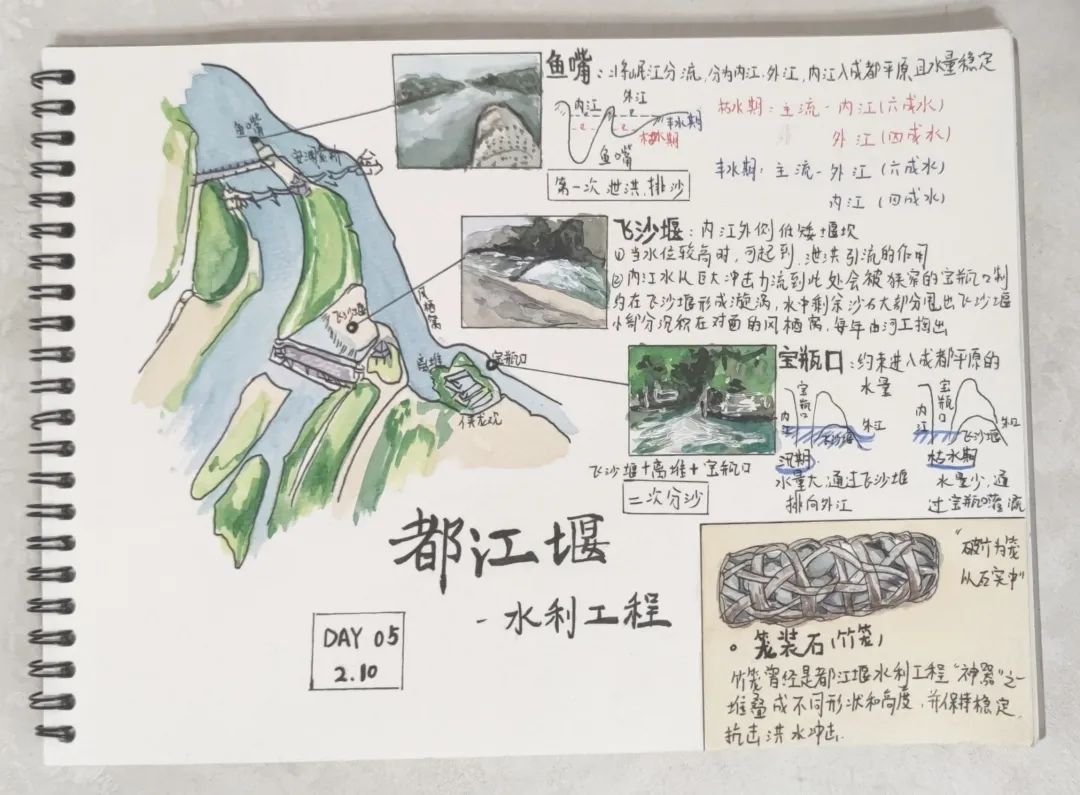 鱼嘴
安澜索桥
飞沙堰
凤栖窝
离堆
宝瓶口
伏龙观
鱼嘴:将岷江分流,分为内江、外江,内江入成都平原且水量稳定
内江 外江
丰水期
枯水期
鱼嘴
第一次泄洪、排沙
枯水期:主流-内江(六成水)
外江(四成水)
丰水期:主流-外江(六成水)
内江(四成水)
飞沙堰:内江外侧低矮堰坝
①当水位较高时,可起到泄洪引流的作用
②内江水从巨大冲击力流到此处会被狭窄的宝瓶口制
约在飞沙堰形成漩涡,水中剩余沙石大部分甩出飞沙堰
小部分沉积在对面的凤栖窝,每年由河工掏出
宝瓶口:约束进入成都平原的
水量
内江 宝瓶口 飞沙堰 外江
汛期
水量大,通过飞沙堰
排向外江
内江 宝瓶口 飞沙堰 外江
枯水期
水量少,通
过宝瓶口灌流
飞沙堰+离堆+宝瓶口
二次分沙
都江堰
-水利工程
DAY 05
2.10
"破竹为笼
从石实中"
笼装石(竹笼)
竹笼曾经是都江堰水利工程"神器"之一
堆叠成不同形状和高度,并保持稳定,
抗击洪水冲击.